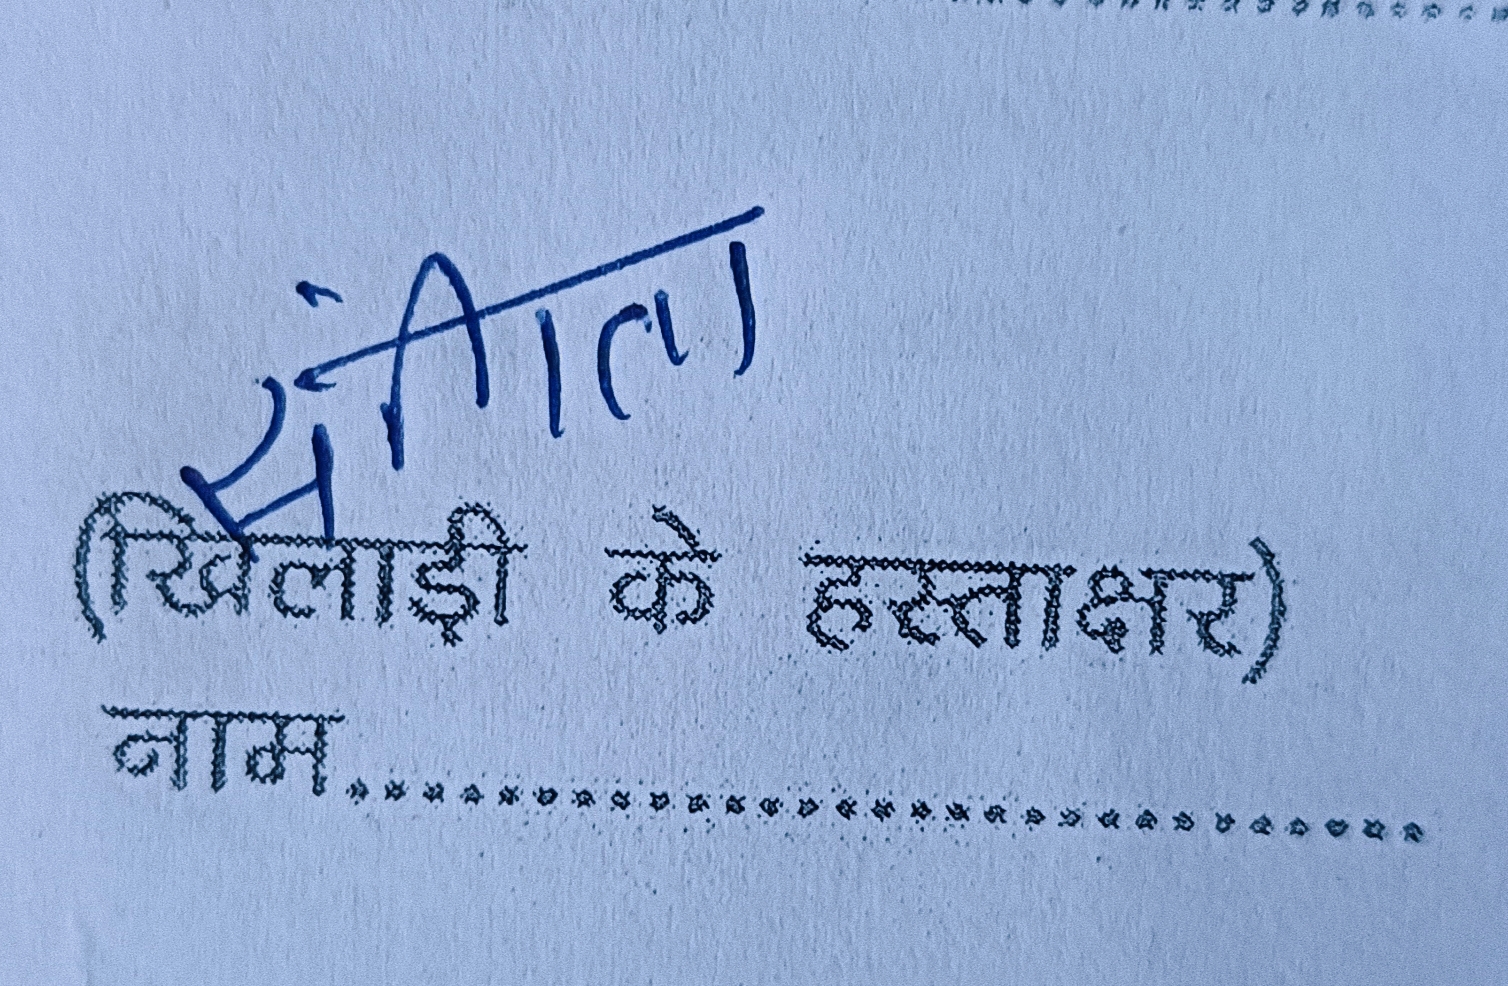 संगीता
(खिलाड़ी के हस्ताक्षर)
नाम..............................